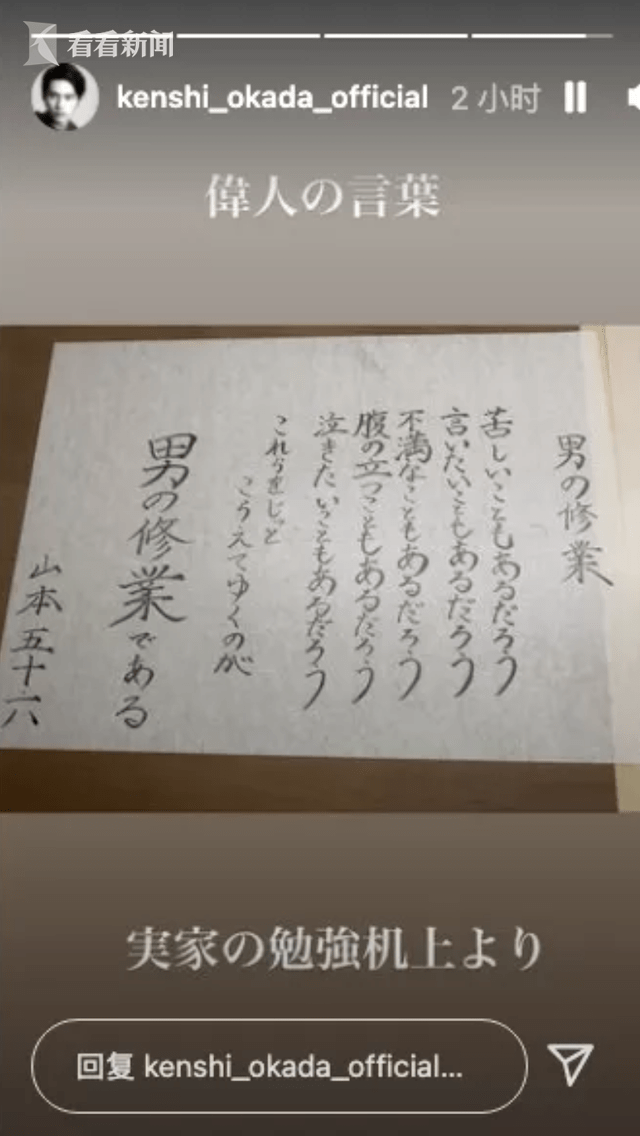 看看新闻
kenshi_okada_official 2 小时
偉人の言葉
男の修業
苦しいこともあるだろう
言いたいこともあるだろう
不満なこともあるだろう
腹の立つこともあるだろう
泣きたいこともあるだろう
これらをじっと
こらえてゆくのが
男の修業である
山本五十六
実家の勉強机上より
回复 kenshi_okada_official...